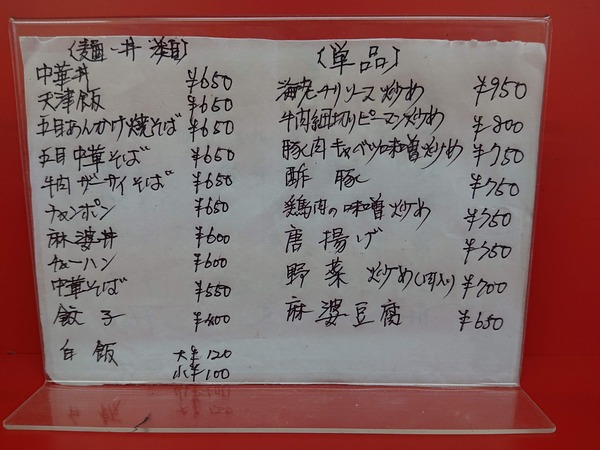 〔麺・丼類〕
中華丼 ¥650
天津飯 ¥650
五目あんかけ焼そば ¥650
五目中華そば ¥650
牛肉ザーサイそば ¥650
チャンポン ¥650
麻婆丼 ¥600
チャーハン ¥600
中華そば ¥550
餃子 ¥400
白飯 大¥120
小¥100
〔単品〕
海老チリソース炒め ¥950
牛肉細切りピーマン炒め ¥800
豚肉キャベツ味噌炒め ¥750
酢豚 ¥750
鶏肉の味噌炒め ¥750
唐揚げ ¥750
野菜炒め(肉入) ¥700
麻婆豆腐 ¥650